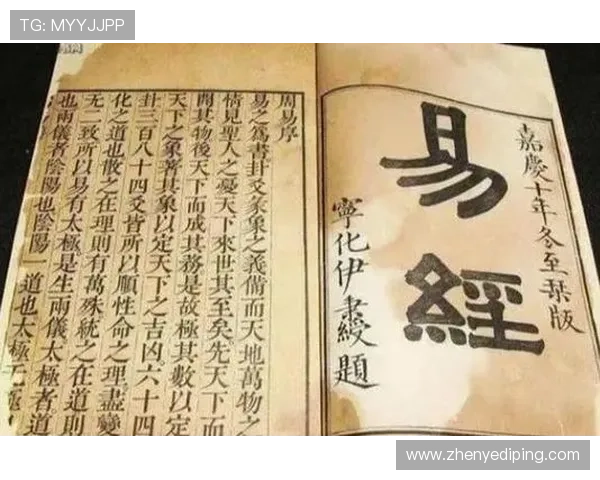 TG: MYYJJPP
嘉慶十年冬至栞版
易經
寧化伊秉綬題
周易序
易之爲書卦爻彖象之義備而天地萬物之
情見聖人之憂天下來世其至矣先天下而
開其物後天下而成其務是故極其數以定
天下之象著其象以定天下之吉凶六十四
卦三百八十四爻皆所以順性命之理盡變
化之道也散之在理則有萬殊統之在道則
无二致所以易有太極是生兩儀太極者道
也兩儀者陰陽也陰陽一道也太極无極
www.zhenyediping.com